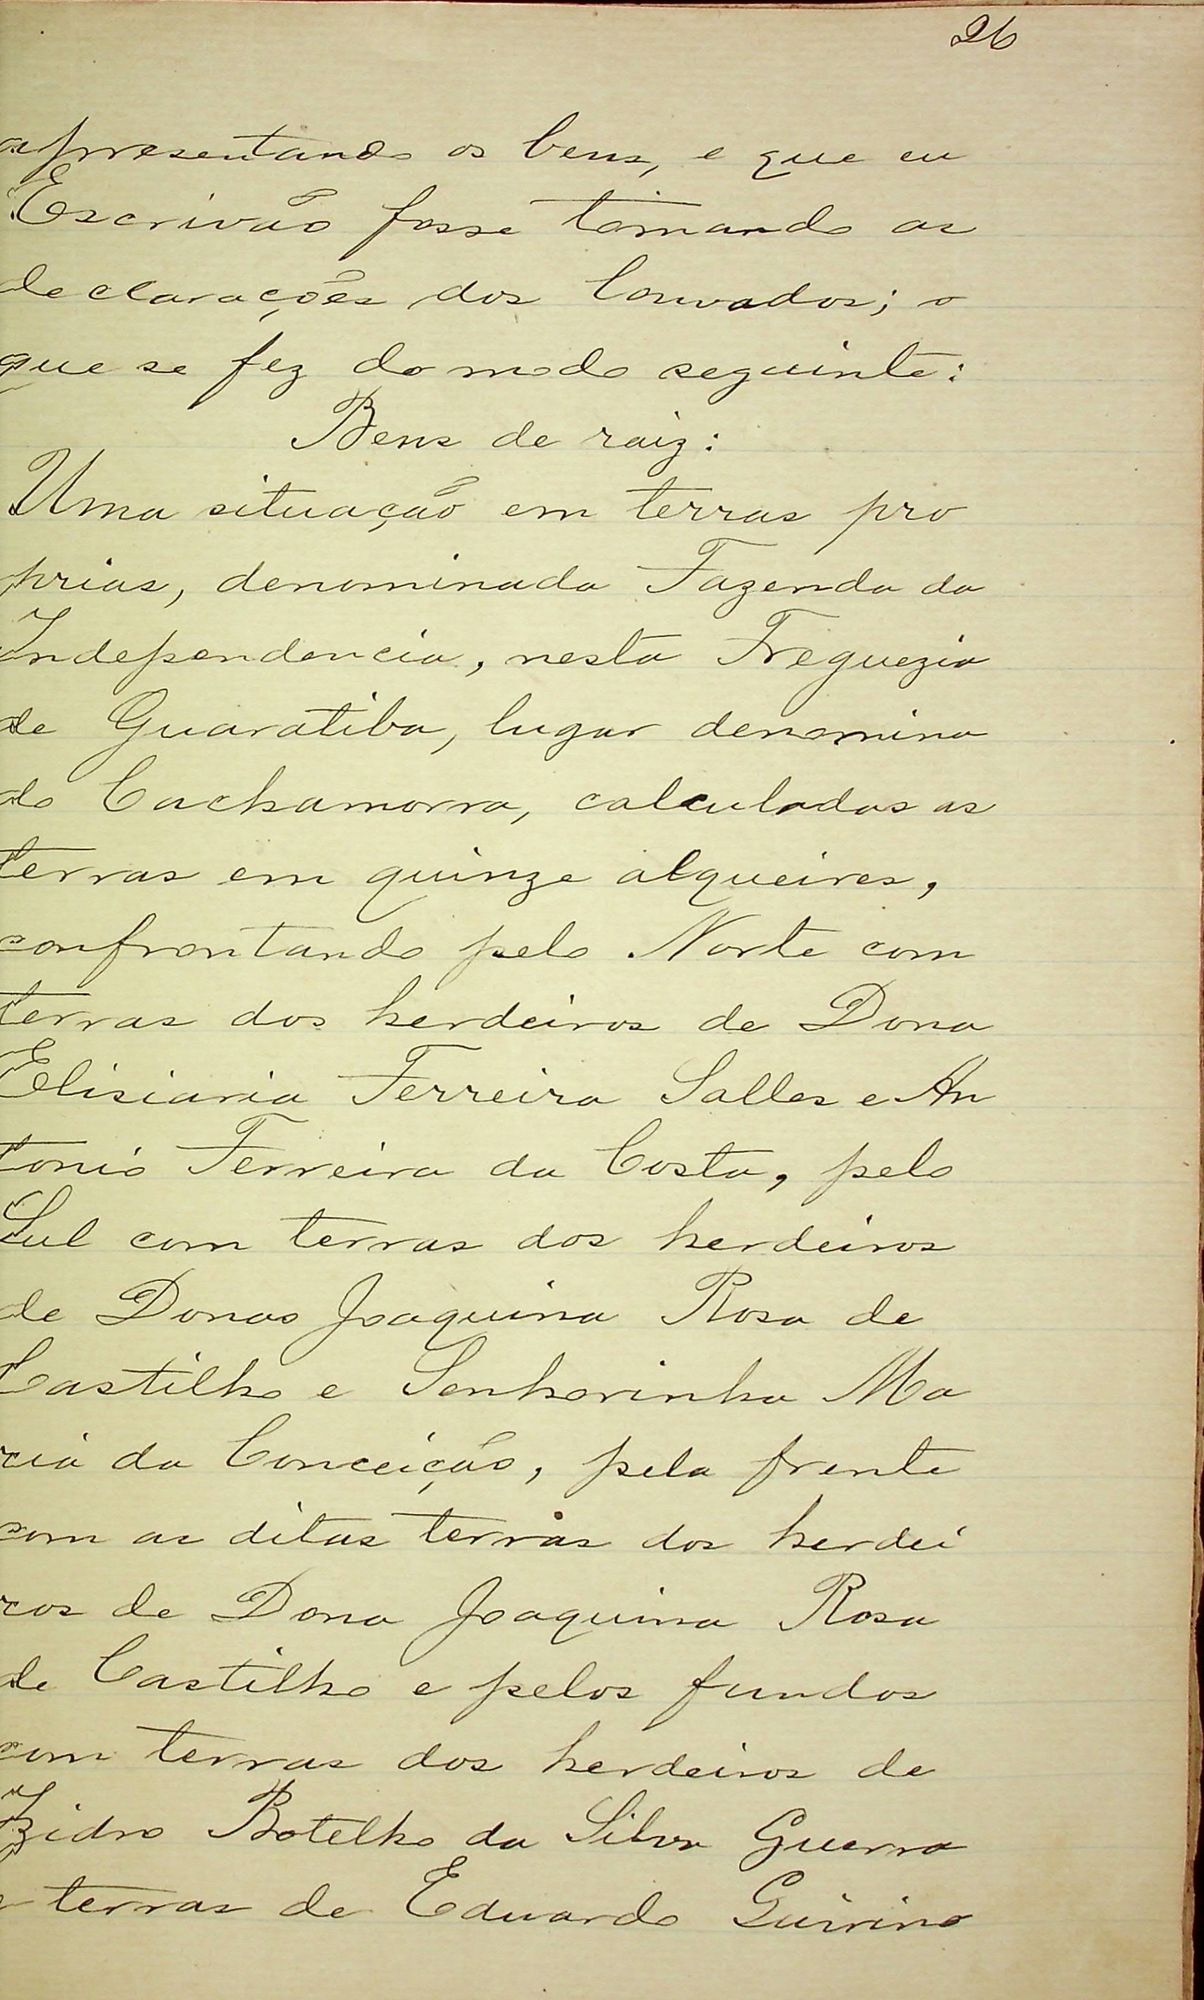 26
apresentando os bens, e que eu
Escrivão fosse tomando as
declarações dos Louvados; o
que se fez do modo seguinte:
Bens de raiz:
Uma situação em terras pro
prias, denominada Fazenda da
Independencia, nesta Freguezia
de Guaratiba, lugar denomina
do Cachamorra, calculadas as
terras em quinze alqueires,
confrontando pelo Norte com
terras dos herdeiros de Dona
Elisiaria Ferreira Salles e An
tonio Ferreira da Costa, pelo
Sul com terras dos herdeiros
de Donas Joaquina Rosa de
Castilho e Senhorinha Ma
ria da Conceição, pela frente
com as ditas terras dos herdei
ros de Dona Joaquina Rosa
de Castilho e pelos fundos
com terras dos herdeiros de
Izidro Botelho da Silva Guerra
e terras de Eduardo Quirino